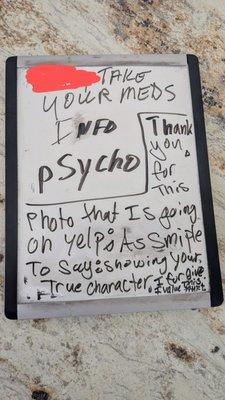 TAKE
YOUR MEDS
INFO
pSycho
Thank
you,
for
This
Photo that Is going
on Yelp; As Smiple
To Say: showing Your
True character. I forgive
I value This